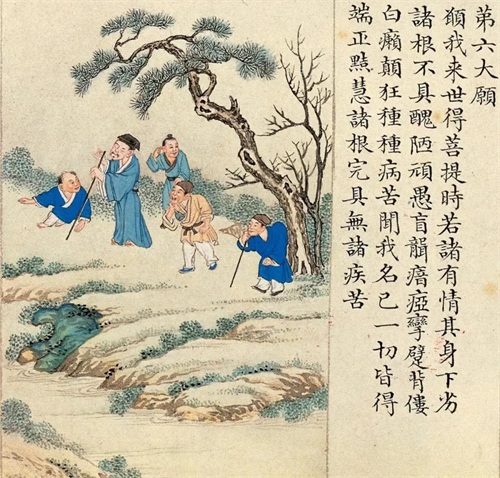 第六大愿
願我来世得菩提時若諸有情其身下劣
諸根不具醜陋頑愚盲聾瘖瘂攣躄背僂
白癩顛狂種種病苦聞我名已一切皆得
端正黠慧諸根完具無諸疾苦